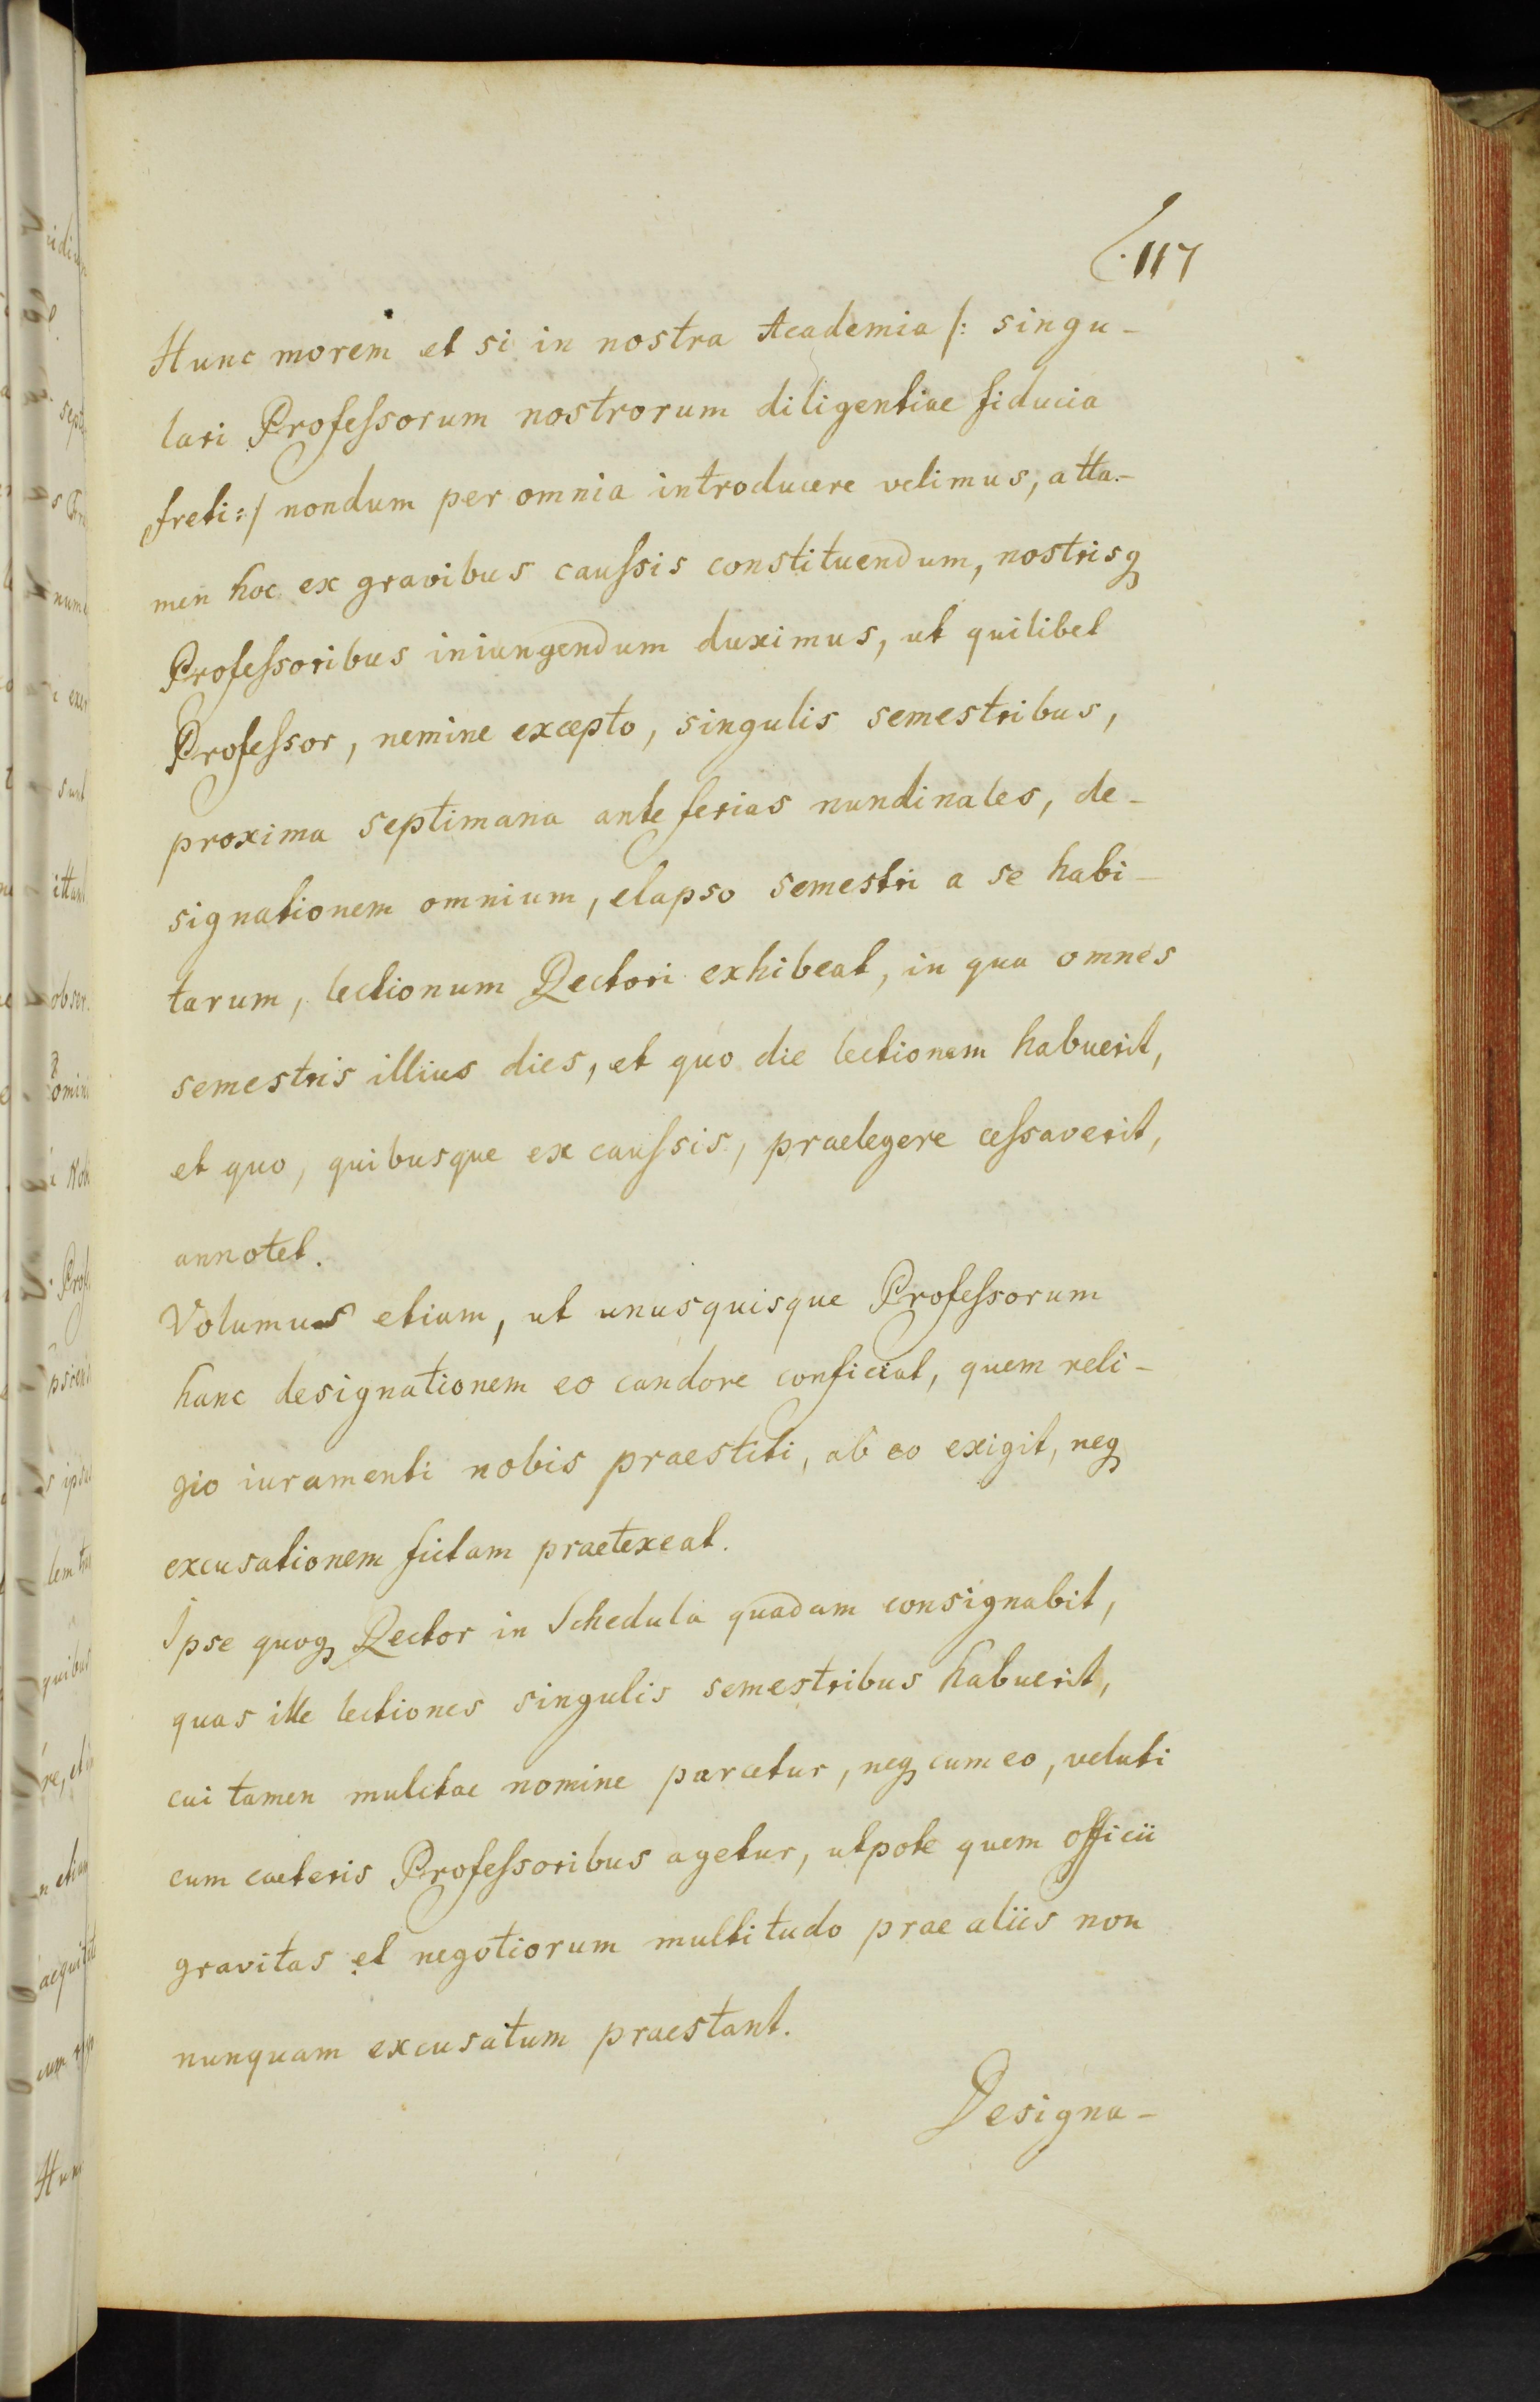 117
Hunc morem et si in nostra Academia /: singu-
lari Professorum nostrorum diligentiae fiducia
freti :/ nondum per omnia introducere velimus, atta-
men hoc ex gravibus caussis constituendum, nostrisq
Professoribus iniungendum duximus, ut quilibet
Professor, nemine excepto, singulis semestribus,
proxima septimana ante ferias nundinales, de-
signationem omnium, elapso semestri a se habi-
tarum, lectionum Rectori exhibeat, in qua omnes
semestris illius dies, et quo die lectionem habuerit,
et quo, quibusque ex caussis, praelegere cessaverit,
annotet.
Volumus etiam, ut unusquisque Professorum
hanc designationem eo candore conficiat, quem reli-
gio iuramenti nobis praestiti, ab eo exigit, neq
excusationem fictam praetexeat.
Ipse quoq Rector in Schedula quadam consignabit,
quas ille lectiones singulis semestribus habuerit,
cui tamen mulctae nomine parcetur, neq cum eo, veluti
cum caeteris Professoribus agetur, utpote quem officii
gravitas et negotiorum multitudo prae aliis non
nunquam excusatum praestant.
Designa-